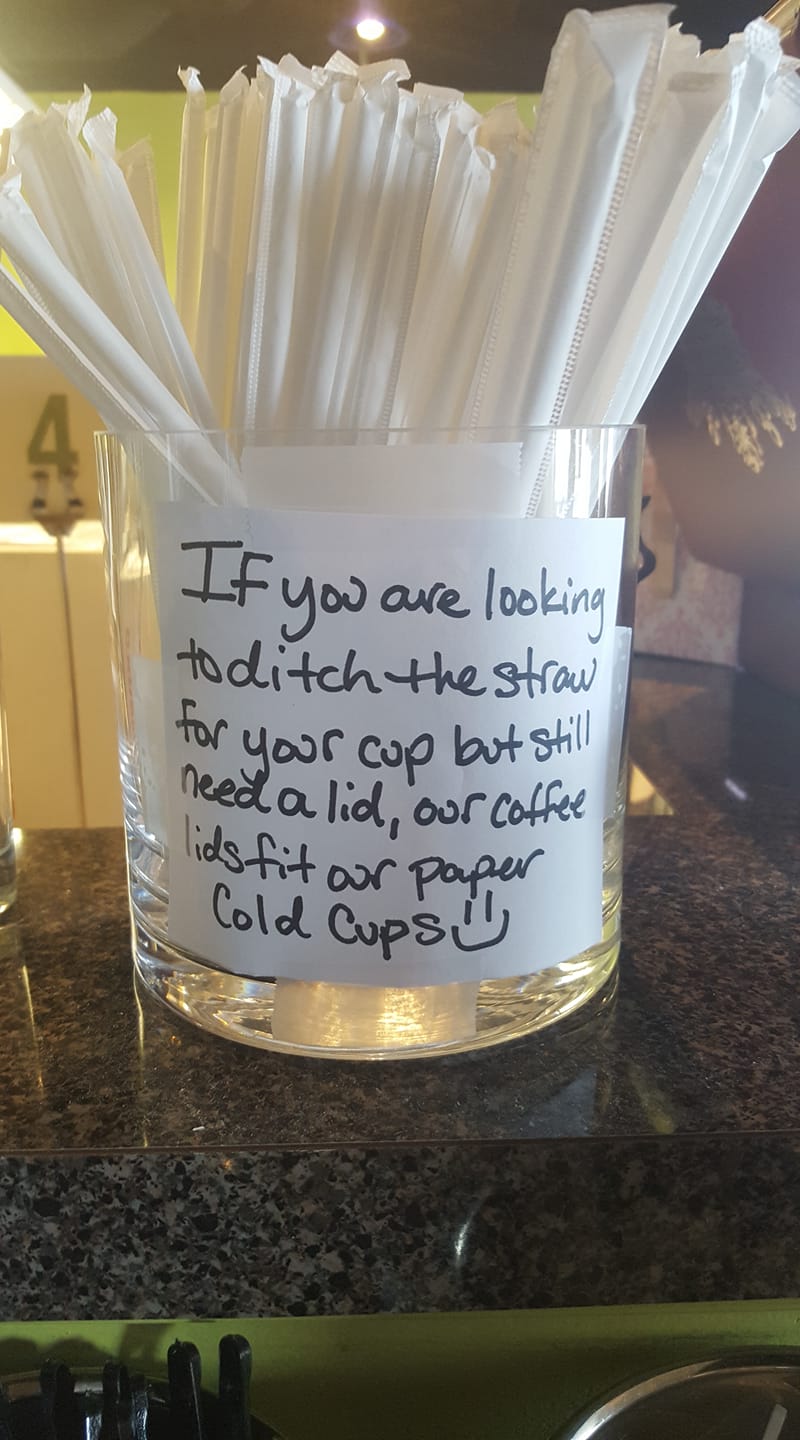 4
If you are looking
to ditch the straw
for your cup but still
need a lid, our coffee
lids fit our paper
Cold Cups